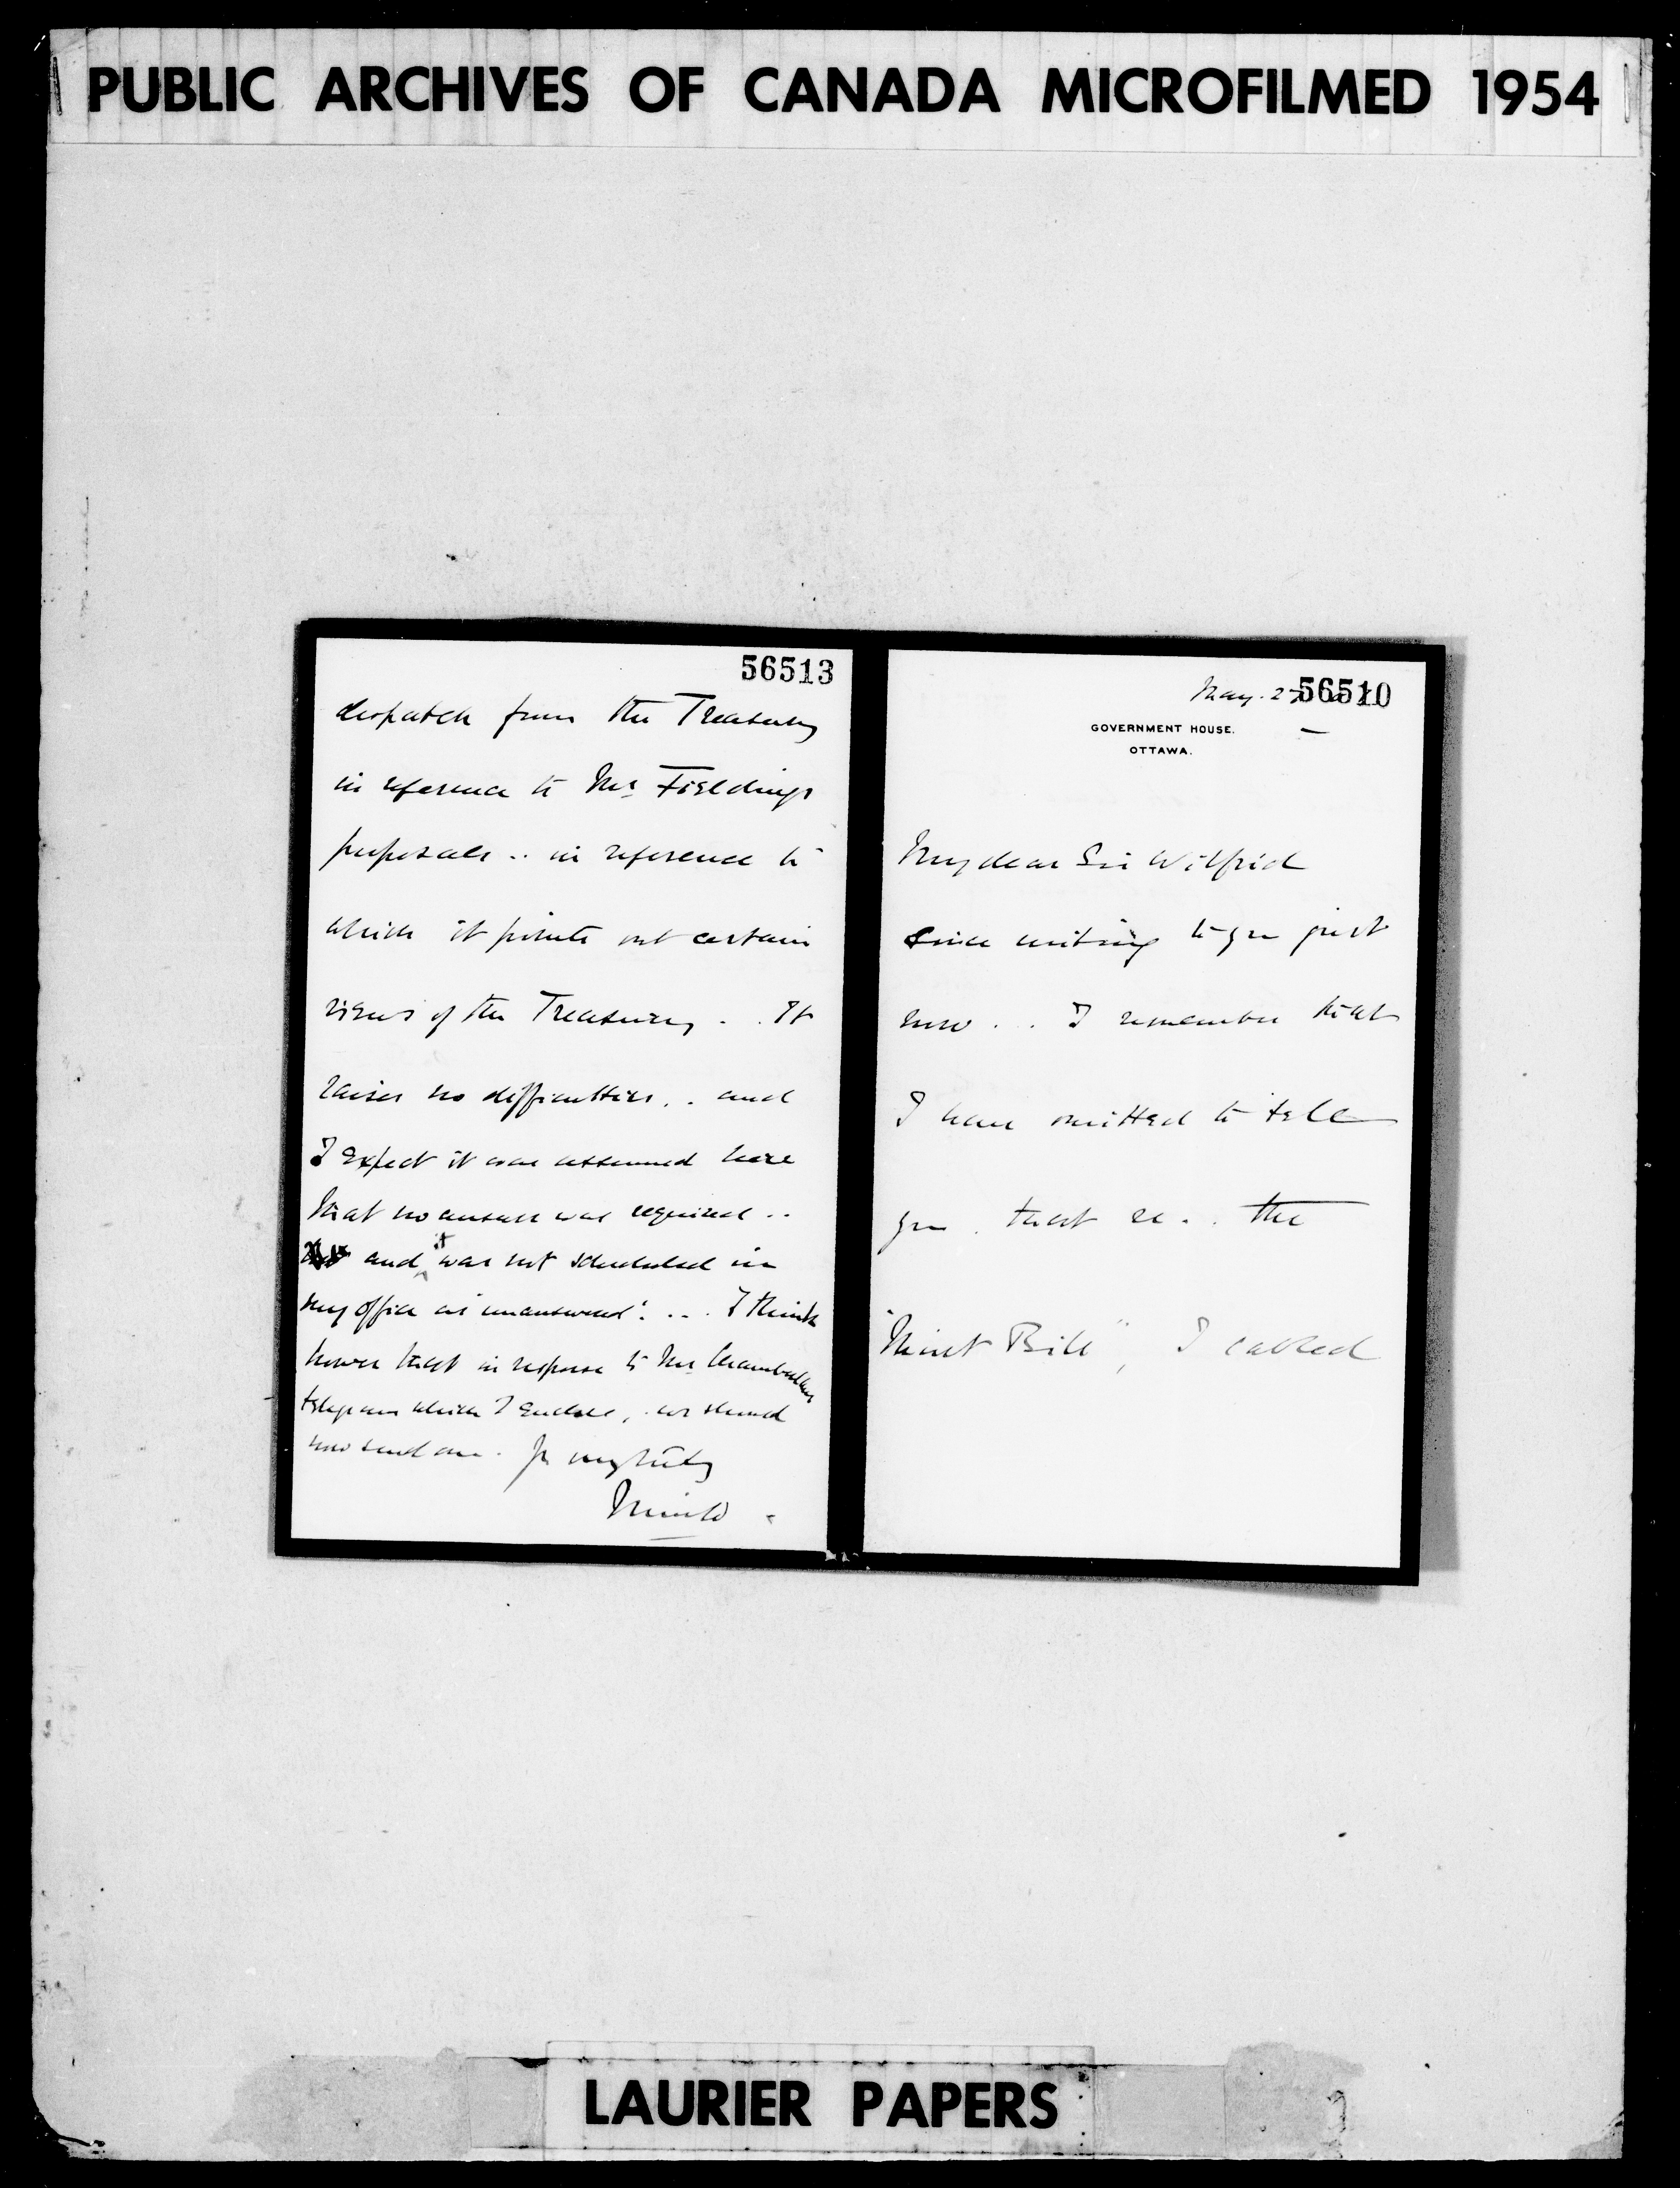 PUBLIC ARCHIVES OF CANADA MICROFILMED 1954
56513
despatch from the Treasury
in reference to Mr Fieldings
proposals .. in reference to
which it points out certain
views of the Treasury . . It
raises no difficulties . . and
I expect it was assumed here
that no answer was required ..
and it was not scheduled in
my office as 'unanswered' . . . I think
however that in response to Mr Chamberlains
telegram which I enclose, we should
now send one. Yrs very truly
Minto
56510
May. 2
GOVERNMENT HOUSE.
OTTAWA.
My dear Sir Wilfrid
Since writing to you just
now . . . I remember that
I have omitted to tell
you . that re . . the
"Mint Bill", I called
LAURIER PAPERS